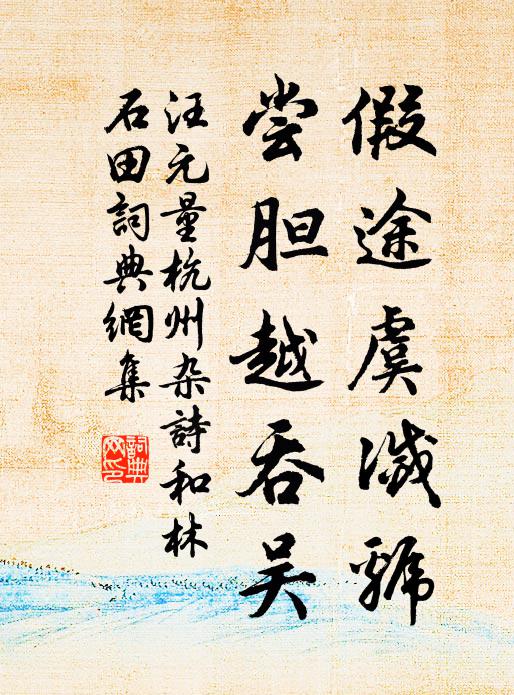 假途虞滅虢
尝胆越吞吴
汪元量杭州杂詩和林
石田詞典網集
詞典网印